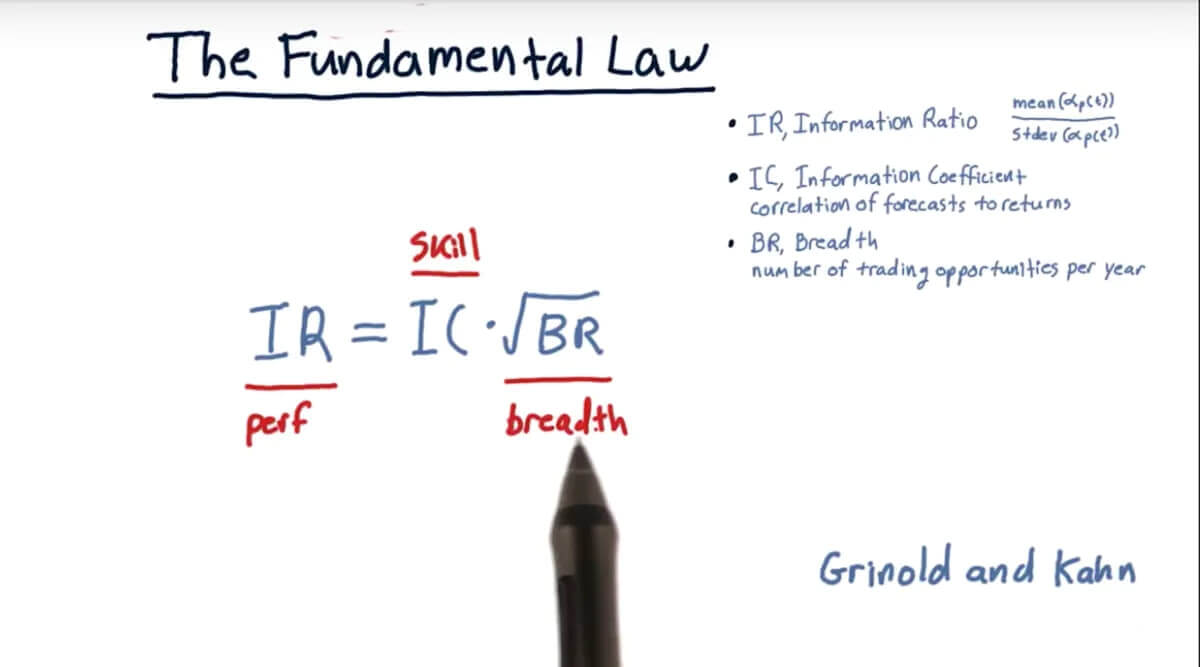 The Fundamental Law
• IR, Information Ratio mean(αp(t))
stdev(αp(t))
• IC, Information Coefficient
correlation of forecasts to returns
• BR, Breadth
number of trading opportunities per year
skill
IR = IC · √BR
perf
breadth
Grinold and Kahn